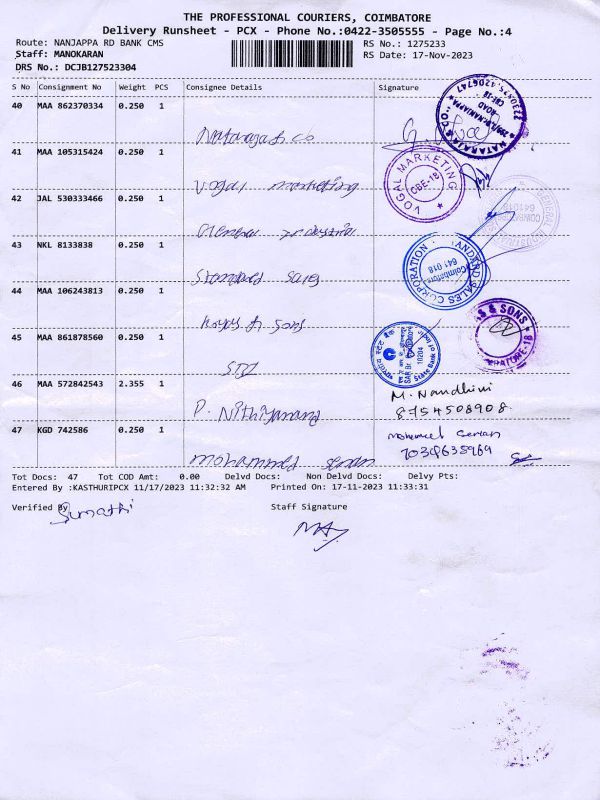 THE PROFESSIONAL COURIERS, COIMBATORE
Delivery Runsheet - PCX - Phone No.:0422-3505555 - Page No.:4
Route: NANJAPPA RD BANK CMS
RS No.: 1275233
Staff: MANOKARAN
RS Date: 17-Nov-2023
DRS No.: DCJB127523304
S No Consignment No Weight PCS Consignee Details Signature
40 MAA 862370334 0.250 1
Nataraja & Co
NATARAJA & CO
41 MAA 105315424 0.250 1
Vogal marketing
VOGAL MARKETING
CBE-18
42 JAL 530333466 0.250 1
General Industrial
COIMBATORE
641018
43 NKL 8133838 0.250 1
Standard Sales
STANDARD SALES CORPORATION
Coimbatore
641 018
44 MAA 106243813 0.250 1
& Sons
& SONS
45 MAA 861878560 0.250 1
SBI
State Bank of India
46 MAA 572842543 2.355 1
P. Nithiyanand
M. Nandhini
8754508908
47 KGD 742586 0.250 1
Mohammed
Tot Docs: 47 Tot COD Amt: 0.00 Delvd Docs: Non Delvd Docs: Delvy Pts:
Entered By :KASTHURIPCX 11/17/2023 11:32:32 AM Printed On: 17-11-2023 11:33:31
Verified By
Sumathi
Staff Signature